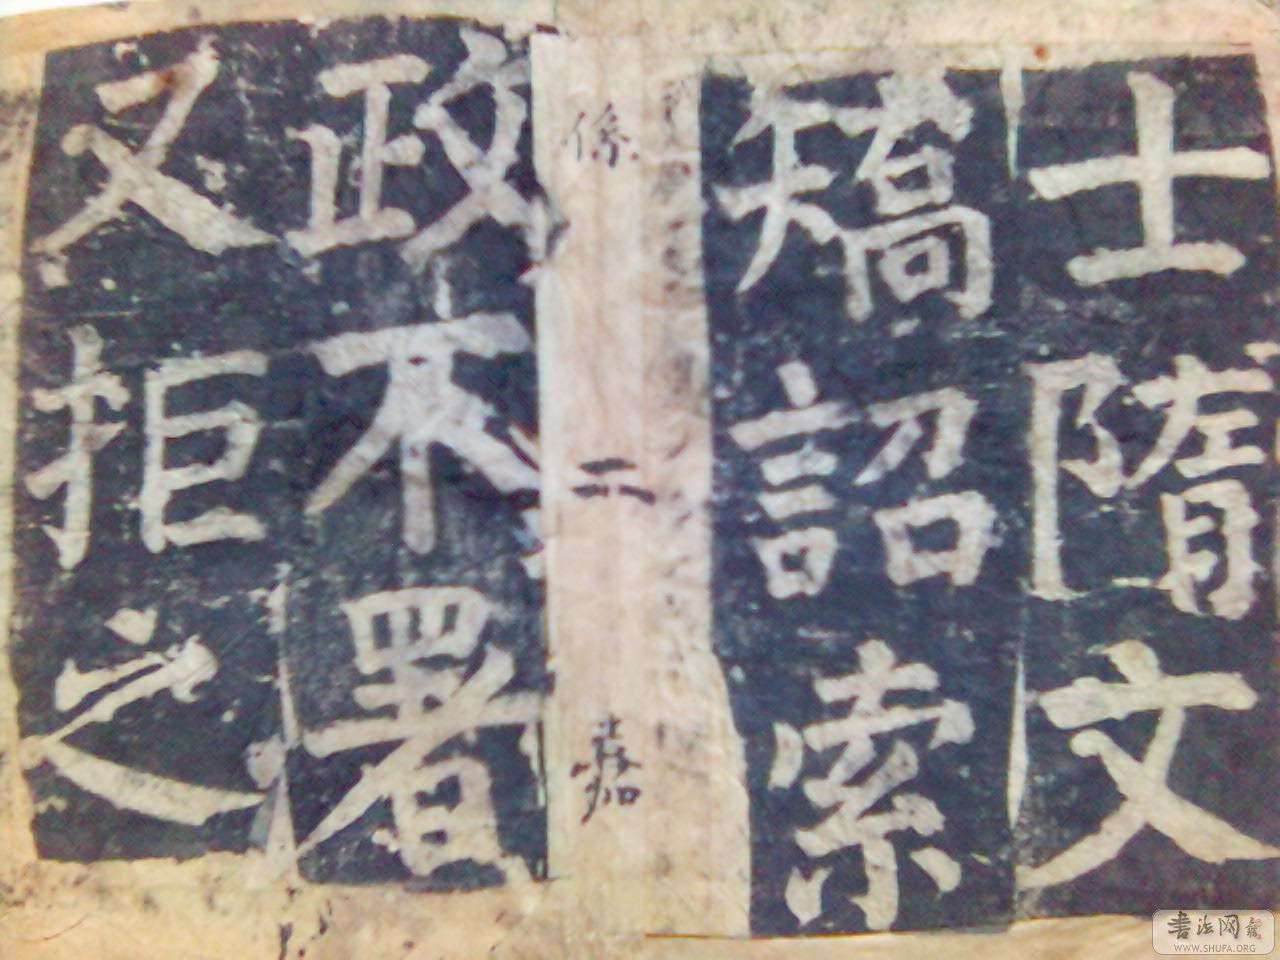 士隋文
矯詔索
係二嘉
政不署
又拒之
書法网
WWW.SHUFA.ORG